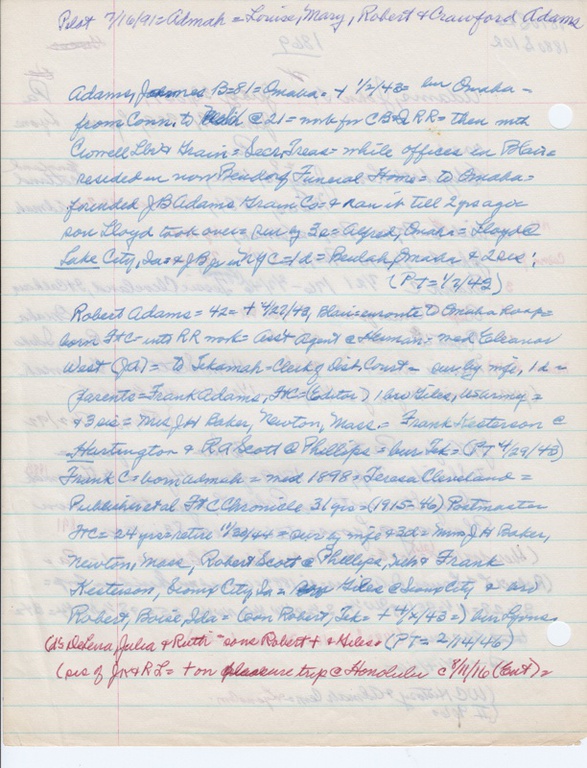 Pilot 7/16/91 = Admah = Louise, Mary, Robert & Crawford Adams
Adams, James B = 81 = Omaha = + 1/2/43 = bur Omaha =
from Conn. to Nebr @ 21 = work for CB&Q RR = then with
Crowell Lbr & Grain = Sec, Treas = while offices in Blair =
resided in now Bendorf Funeral Home = to Omaha =
founded J B Adams Grain Co = & ran it till 2 yrs ago =
son Lloyd took over = sur by 3s = Alfred, Omaha = Lloyd @
Lake City, Ia = & J B jr in NYC = 1d = Beulah, Omaha & 2sis:
(PT = 1/7/43)
Robert Adams = 42 = + 4/22/43, Blair enroute to Omaha hosp =
born Ft C = into RR work = Ass't Agent @ Herman = med Eleanor
West (Ia) = to Tekamah = Clerk of Dist. Court = sur by wife, 1d =
parents = Frank Adams, Ft C = (Editor) 1 bro Giles, US Army =
& 3 sis = Mrs J H Baker, Newton, Mass. = Frank Kesterson @
Hartington & R A Scott @ Phillips = bur Tek = (PT 4/29/43)
Frank C = born Admah = med 1898 = Teresa Cleveland =
Publisher etal Ft C Chronicle 31 yrs = (1915=46) Postmaster
Ft C = 24 yrs = retire 11/30/44 = sur by wife & 3d = Mmes J H Baker,
Newton, Mass, Robert Scott @ Phillips, Neb & Frank
Kesterson, Sioux City, Ia = Giles @ Sioux City & bro
Robert, Boise, Ida = (son Robert, Tek = + 4/2/43 =) bur Lyons
(ds DeLeva, Julia & Ruth = sons Robert + & Giles (PT = 2/14/46)
(sis of J H & R L = + on pleasure trip @ Honolulu c 8/11/16 (Ent) =